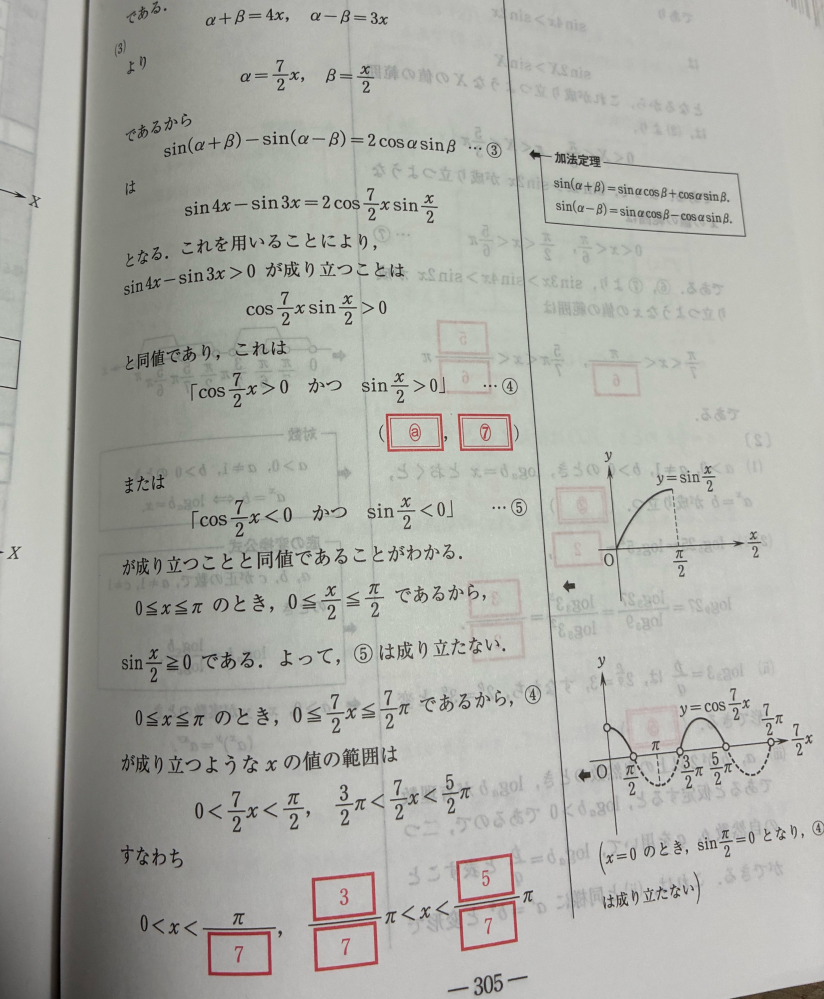 である．
α＋β＝4x， α－β＝3x
(3)
より
α＝7/2 x， β＝x/2
であるから
sin(α＋β)－sin(α－β)＝2cosαsinβ …③
は
sin4x－sin3x＝2cos 7/2 x sin x/2
となる．これを用いることにより，
sin4x－sin3x＞0 が成り立つことは
cos 7/2 x sin x/2＞0
と同値であり，これは
「cos 7/2 x＞0 かつ sin x/2＞0」 …④
(ⓐ，⑦)
または
「cos 7/2 x＜0 かつ sin x/2＜0」 …⑤
が成り立つことと同値であることがわかる．
0≦x≦π のとき，0≦x/2≦π/2 であるから，
sin x/2≧0 である．よって，⑤は成り立たない．
0≦x≦π のとき，0≦7/2 x≦7/2 π であるから，④
が成り立つような x の値の範囲は
0＜7/2 x＜π/2， 3/2 π＜7/2 x＜5/2 π
すなわち
0＜x＜π/7， 3/7 π＜x＜5/7 π
加法定理
sin(α＋β)＝sinαcosβ＋cosαsinβ．
sin(α－β)＝sinαcosβ－cosαsinβ．
y
y＝sin x/2
O
π/2
x/2
y
y＝cos 7/2 x
O
π/2
π
3/2 π
5/2 π
7/2 π
7/2 x
(x＝0 のとき，sin π/2＝0 となり，④
は成り立たない)
X
X
—305—